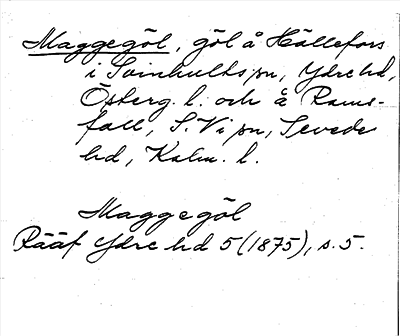 Maggegöl, göl å Hällefors
i Svinhults sn, Ydre hd,
Österg. l. och å Rams-
fall, S. Vi sn, Sevede
hd, Kalm. l.
Maggegöl
Rääf Ydre hd 5 (1875), s. 5.